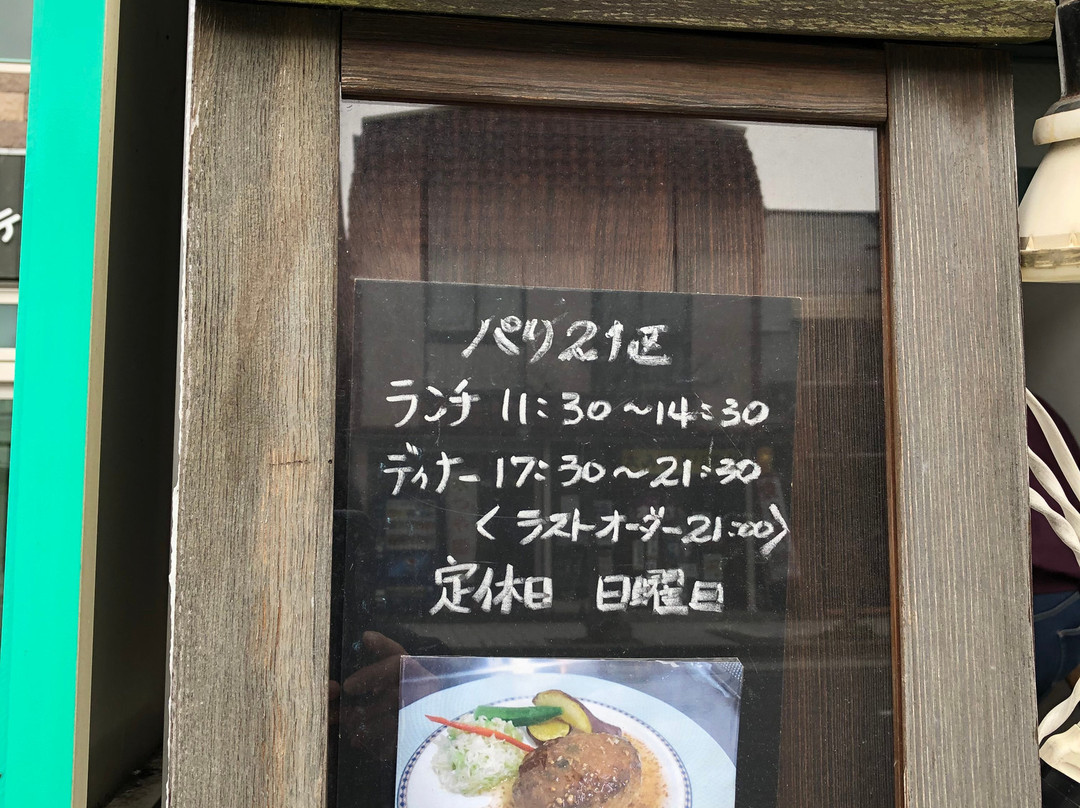 パリ21区
ランチ 11:30～14:30
ディナー 17:30～21:30
〈ラストオーダー21:00〉
定休日 日曜日